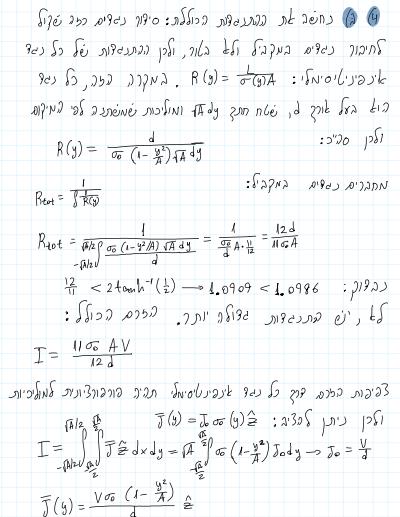 4) ב) נחשב את ההתנגדות הכוללת: סידור נגדים כזה שקול
לחיבור נגדים במקביל ולא בטור, ולכן ההתנגדות של כל נגד
אינפיניטיסימלי: R(y) = l/(σ(y)A). במקרה הזה, כל נגד
הוא בעל אורך d, שטח חתך √A dy ומוליכות שמשתנה לפי המיקום
ולכן סה"כ:
R(y) = d/(σ₀(1-y²/A)√A dy)
מחברים נגדים במקביל:
R_tot = 1/(∫ 1/R(y))
R_tot = 1/(∫_{-√A/2}^{√A/2} σ₀(1-y²/A)√A dy / d) = 1/(σ₀/d A·11/12) = 12d/(11σ₀A)
נבדוק: 12/11 < 2tanh⁻¹(1/2) → 1.0909 < 1.0986
לא, יש התנגדות גדולה יותר. הזרם הכולל:
I = 11σ₀AV/(12d)
צפיפות הזרם דרך כל נגד אינפיניטסימלי תהיה פרופורציונית למוליכות
ולכן ניתן להציב: J̄(y) = J₀σ₀(y)ẑ
I = ∫_{-√A/2}^{√A/2} ∫_{-√A/2}^{√A/2} J̄ẑ dxdy = √A ∫_{-√A/2}^{√A/2} σ₀(1-y²/A)J₀dy → J₀ = V/d
J̄(y) = Vσ₀(1-y²/A)/d ẑ